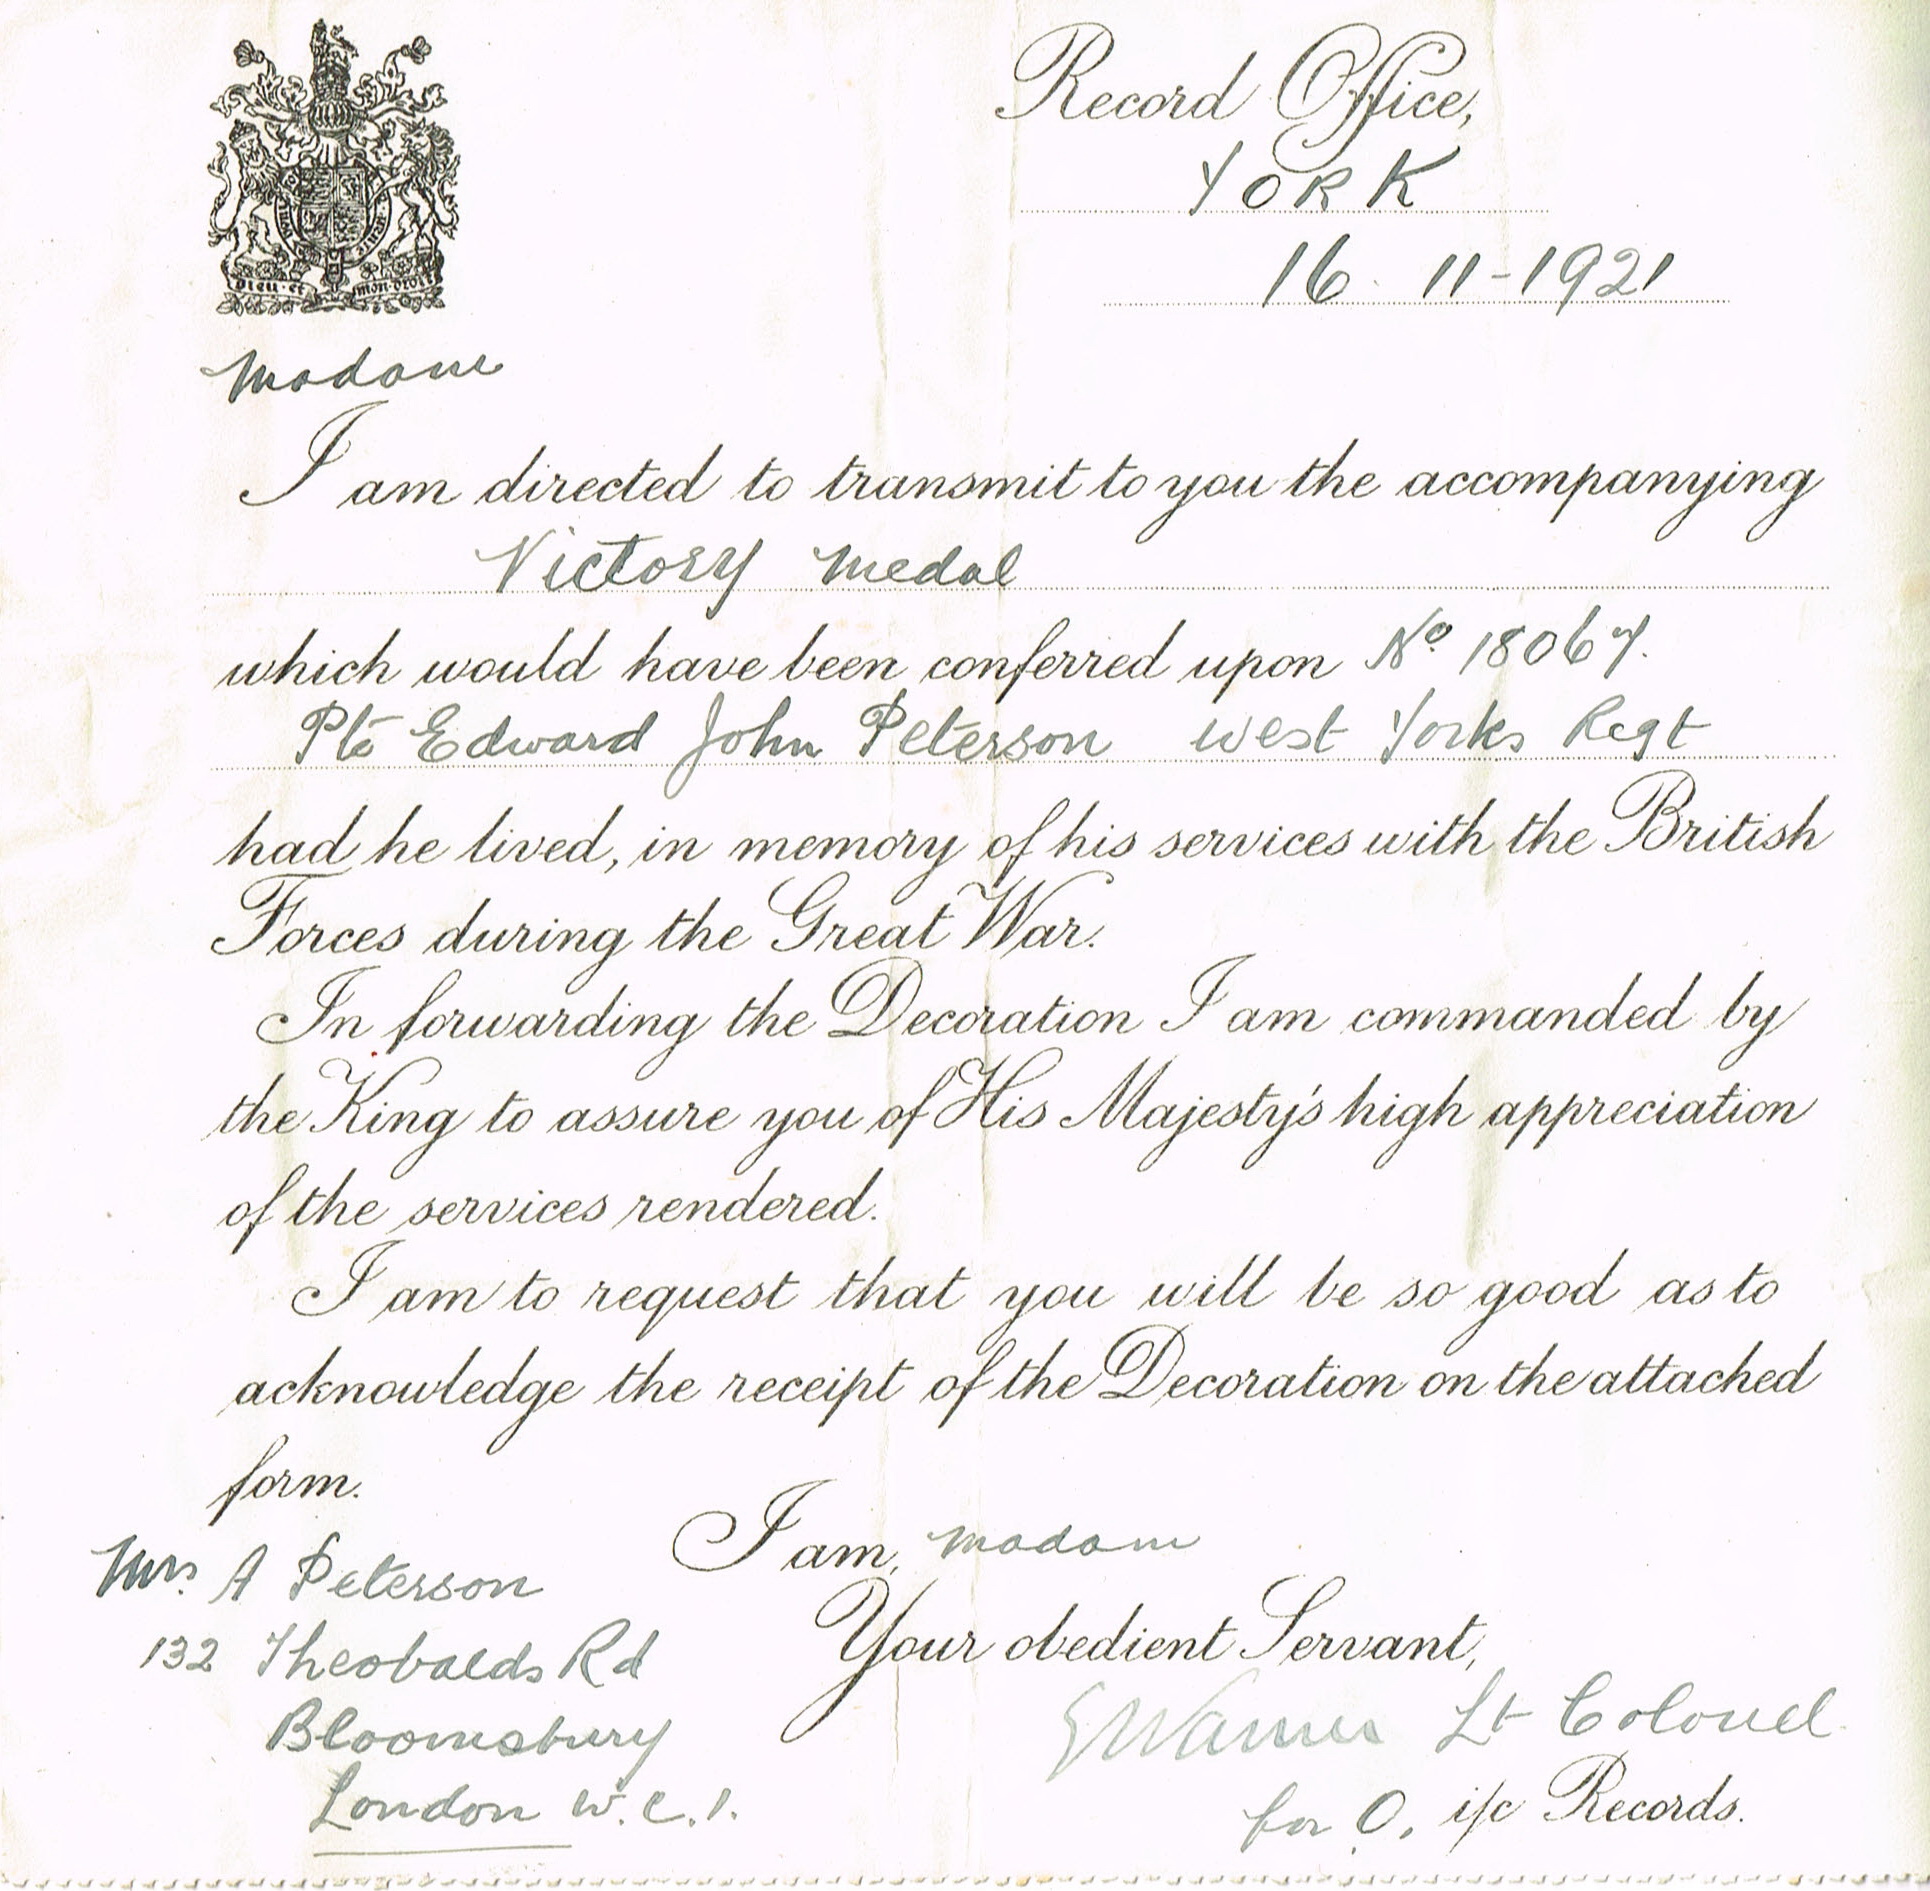 Record Office,
YORK
16. 11-1921
Dieu et mon droit
Madam
I am directed to transmit to you the accompanying
Victory Medal
which would have been conferred upon No 18067.
Pte Edward John Peterson West Yorks Regt
had he lived, in memory of his services with the British
Forces during the Great War.
In forwarding the Decoration I am commanded by
the King to assure you of His Majesty's high appreciation
of the services rendered.
I am to request that you will be so good as to
acknowledge the receipt of the Decoration on the attached
form.
I am, Madam
Your obedient Servant,
Lt Colonel
for O. i/c Records.
Mrs. A Peterson
132 Theobalds Rd
Bloomsbury
London W.C.1.